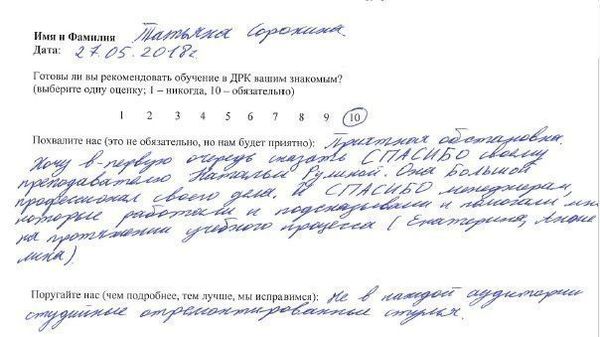 Имя и Фамилия Татьяна Сорокина.
Дата: 27.05.2018г.
Готовы ли вы рекомендовать обучение в ДРК вашим знакомым?
(выберите одну оценку; 1 – никогда, 10 – обязательно)
1 2 3 4 5 6 7 8 9 10
Похвалите нас (это не обязательно, но нам будет приятно): Приятная обстановка.
Хочу в-первую очередь сказать СПАСИБО своему
преподавателю Наталье Руминой. Она большой
профессионал своего дела. И СПАСИБО менеджерам,
которые работали и подсказывали и помогали мне
на протяжении учебного процесса (Екатерина, Анже
лина).
Поругайте нас (чем подробнее, тем лучше, мы исправимся): Не в каждой аудитории
студийные отремонтированные стулья.